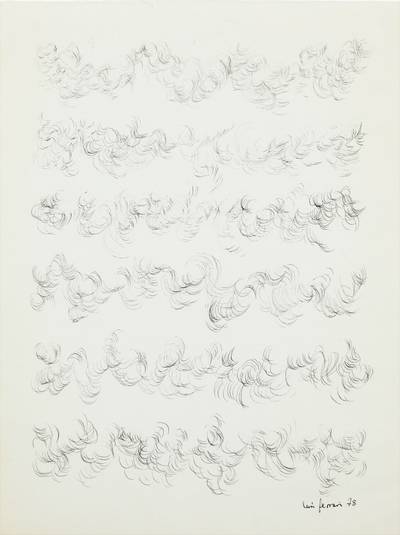 león ferrari 78